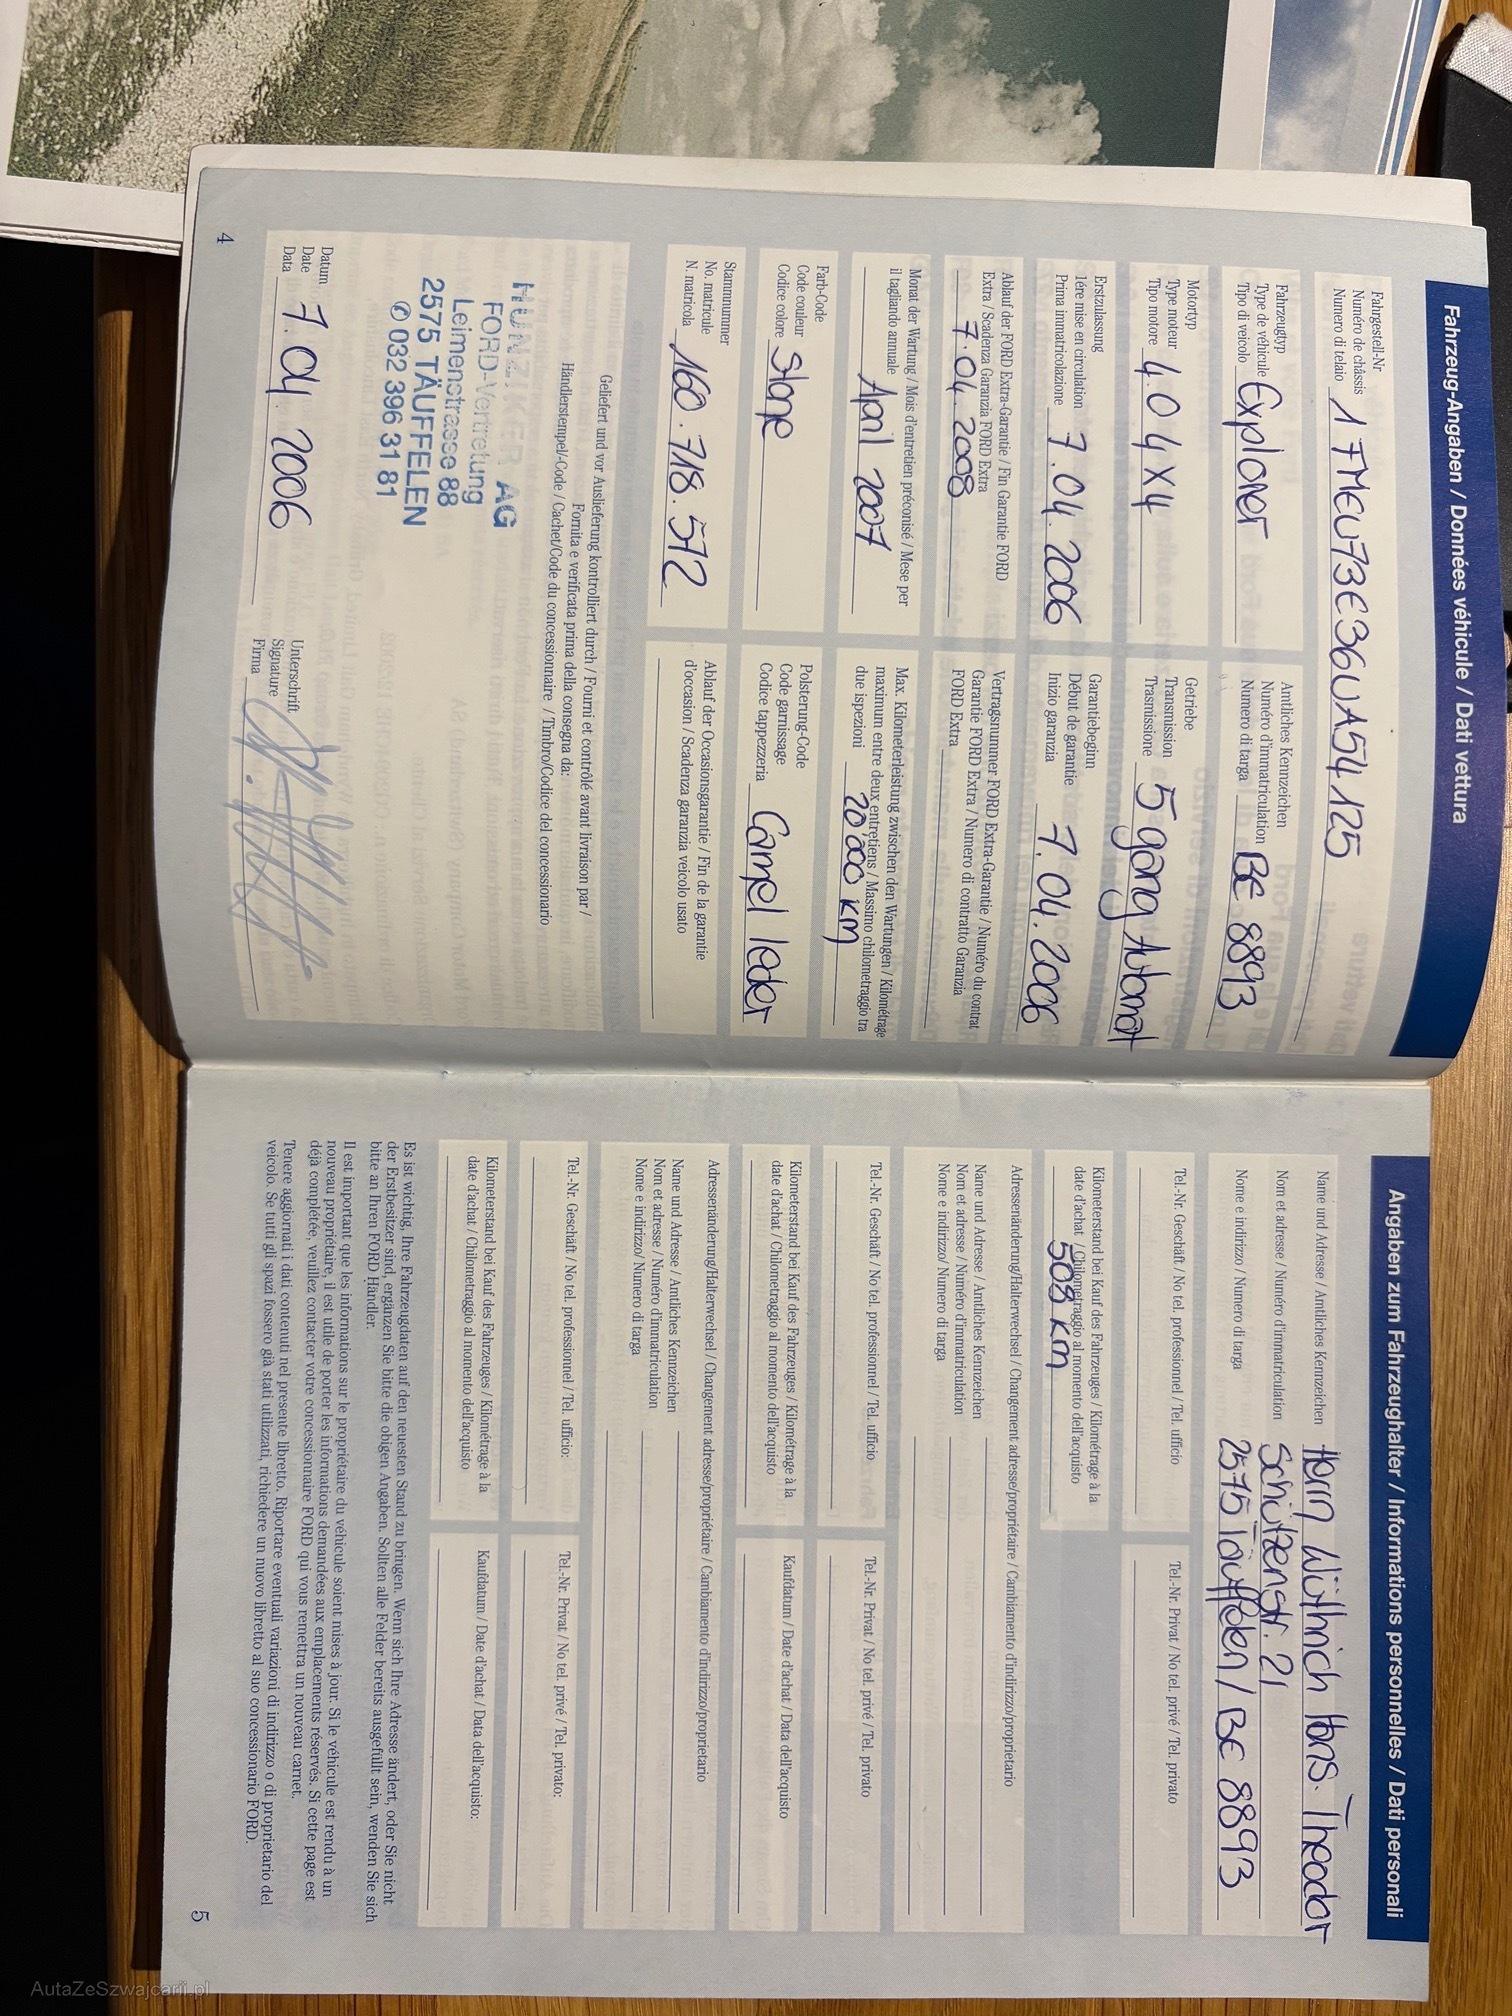 Fahrzeug-Angaben / Données véhicule / Dati vettura
Fahrgestell-Nr
Numéro de châssis
Numero di telaio 1FMEU73E36UA54125
Fahrzeugtyp
Type de véhicule
Tipo di veicolo Explorer
Amtliches Kennzeichen
Numéro d'immatriculation
Numero di targa BE 8893
Motortyp
Type moteur
Tipo motore 4.0 4x4
Getriebe
Transmission
Trasmissione 5 gang Automat
Erstzulassung
1ére mise en circulation
Prima immatricolazione 7.04.2006
Garantiebeginn
Début de garantie
Inizio garanzia 7.04.2006
Ablauf der FORD Extra-Garantie / Fin Garantie FORD
Extra / Scadenza Garanzia FORD Extra
7.04.2008
Vertragsnummer FORD Extra-Garantie / Numéro du contrat
Garantie FORD Extra / Numero di contratto Garanzia
FORD Extra
Monat der Wartung / Mois d'entretien préconisé / Mese per
il tagliando annuale April 2007
Max. Kilometerleistung zwischen den Wartungen / Kilométrage
maximum entre deux entretiens / Massimo chilometraggio tra
due ispezioni 20'000 KM
Farb-Code
Code couleur
Codice colore Stone
Polsterung-Code
Code garnissage
Codice tappezzeria Camel leder
Stammnummer
No. matricule
N. matricola 160.718.572
Ablauf der Occasionsgarantie / Fin de la garantie
d'occasion / Scadenza garanzia veicolo usato
Geliefert und vor Auslieferung kontrolliert durch / Fourni et contrôlé avant livraison par /
Fornita e verificata prima della consegna da:
Händlerstempel/-Code / Cachet/Code du concessionnaire / Timbro/Codice del concessionario
HUNZIKER AG
FORD-Vertretung
Leimenstrasse 88
2575 TÄUFFELEN
✆ 032 396 31 81
Datum
Date
Data 7.04.2006
Unterschrift
Signature
Firma
4
Angaben zum Fahrzeughalter / Informations personnelles / Dati personali
Name und Adresse / Amtliches Kennzeichen Herrn Wüthrich Hans-Theodor
Nom et adresse / Numéro d'immatriculation Schützenstr. 21
Nome e indirizzo / Numero di targa 2575 Täuffelen / BE 8893
Tel.-Nr. Geschäft / No tel. professionnel / Tel. ufficio
Tel.-Nr. Privat / No tel. privé / Tel. privato
Kilometerstand bei Kauf des Fahrzeuges / Kilométrage à la
date d'achat / Chilometraggio al momento dell'acquisto
508 KM
Adressenänderung/Halterwechsel / Changement adresse/propriétaire / Cambiamento d'indirizzo/proprietario
Name und Adresse / Amtliches Kennzeichen
Nom et adresse / Numéro d'immatriculation
Nome e indirizzo/ Numero di targa
Tel.-Nr. Geschäft / No tel. professionnel / Tel. ufficio
Tel.-Nr. Privat / No tel. privé / Tel. privato
Kilometerstand bei Kauf des Fahrzeuges / Kilométrage à la
date d'achat / Chilometraggio al momento dell'acquisto
Kaufdatum / Date d'achat / Data dell'acquisto
Adressenänderung/Halterwechsel / Changement adresse/propriétaire / Cambiamento d'indirizzo/proprietario
Name und Adresse / Amtliches Kennzeichen
Nom et adresse / Numéro d'immatriculation
Nome e indirizzo/ Numero di targa
Tel.-Nr. Geschäft / No tel. professionnel / Tel. ufficio:
Tel.-Nr. Privat / No tel. privé / Tel. privato:
Kilometerstand bei Kauf des Fahrzeuges / Kilométrage à la
date d'achat / Chilometraggio al momento dell'acquisto
Kaufdatum / Date d'achat / Data dell'acquisto:
Es ist wichtig, Ihre Fahrzeugdaten auf den neuesten Stand zu bringen. Wenn sich Ihre Adresse ändert, oder Sie nicht
der Erstbesitzer sind, ergänzen Sie bitte die obigen Angaben. Sollten alle Felder bereits ausgefüllt sein, wenden Sie sich
bitte an Ihren FORD Händler.
Il est important que les informations sur le propriétaire du véhicule soient mises à jour. Si le véhicule est rendu à un
nouveau propriétaire, il est utile de porter les informations demandées aux emplacements réservés. Si cette page est
déjà complétée, veuillez contacter votre concessionnaire FORD qui vous remettra un nouveau carnet.
Tenere aggiornati i dati contenuti nel presente libretto. Riportare eventuali variazioni di indirizzo o di proprietario del
veicolo. Se tutti gli spazi fossero già stati utilizzati, richiedere un nuovo libretto al suo concessionario FORD.
5
AutaZeSzwajcarii.pl